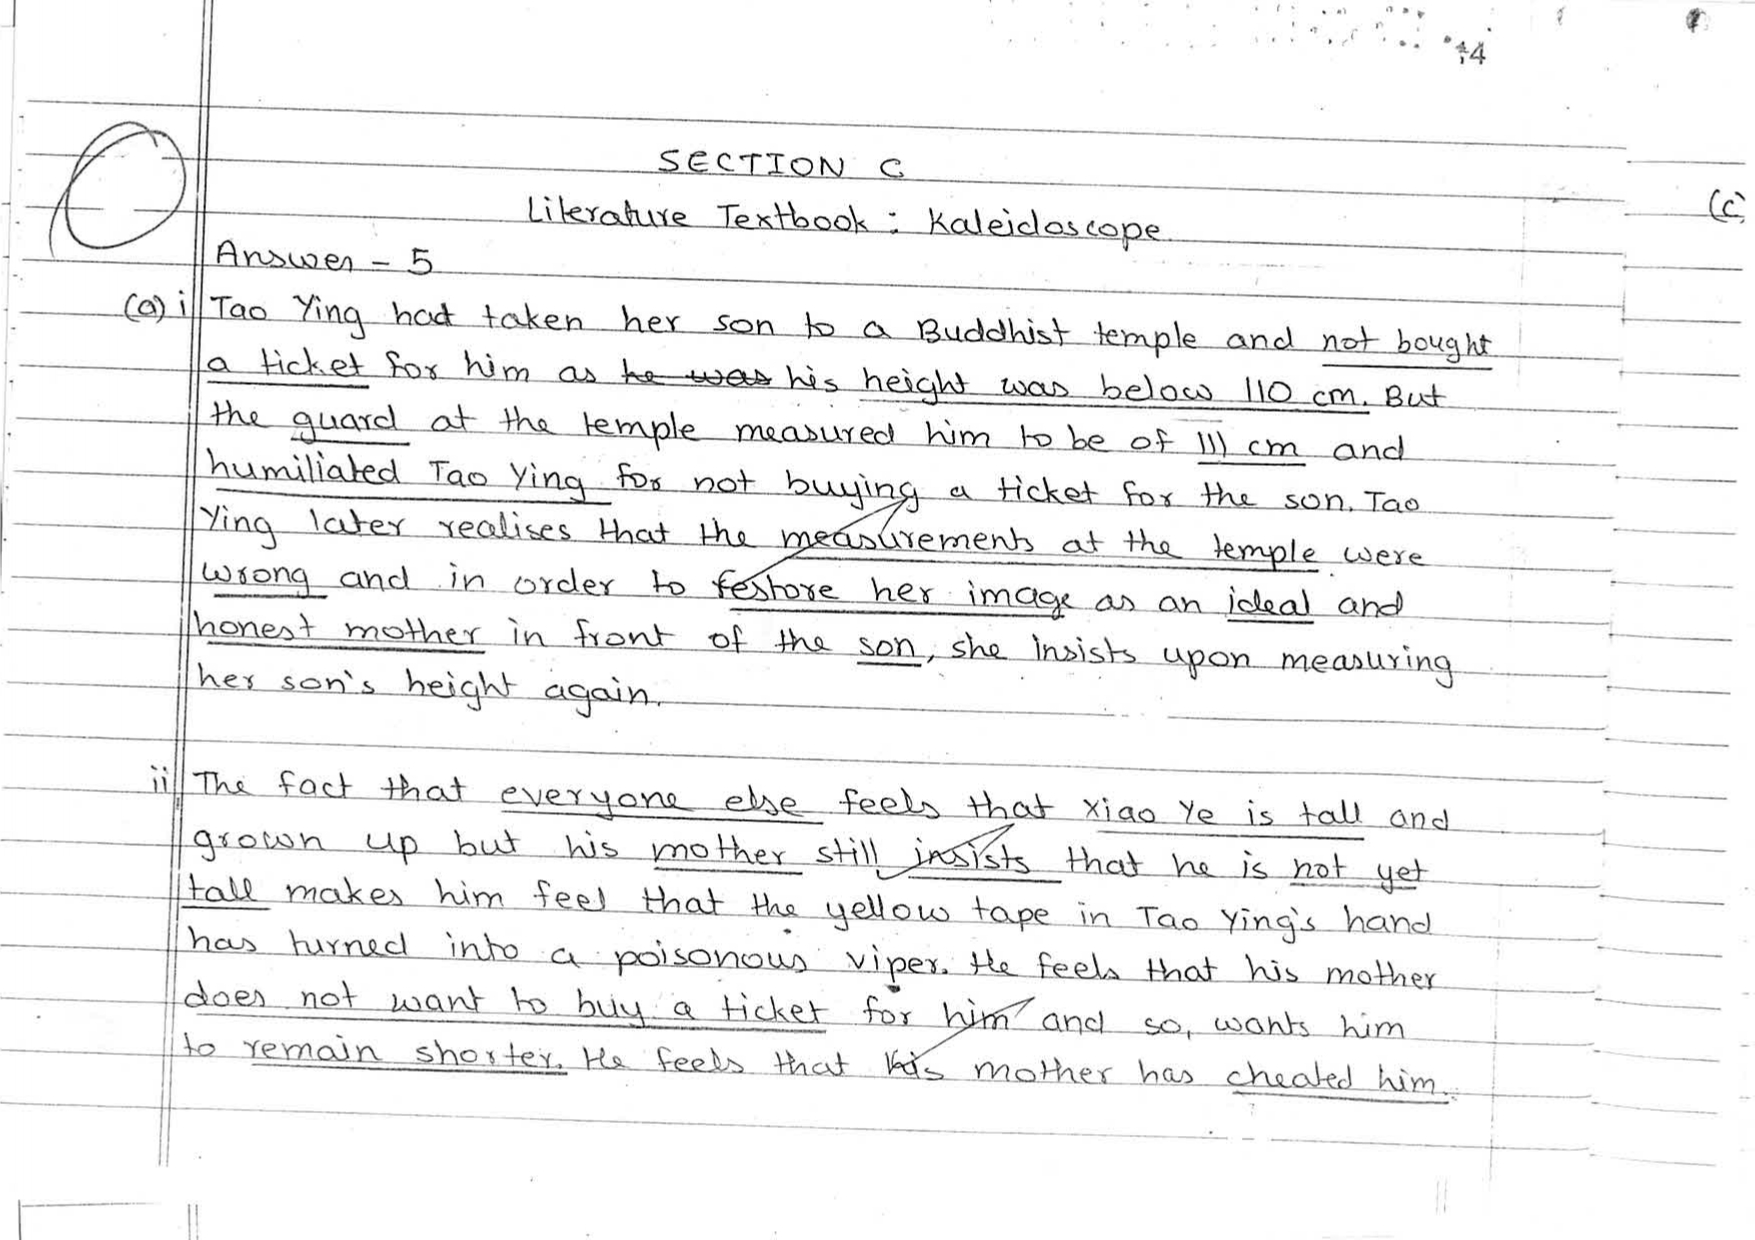 14
SECTION C
Literature Textbook: Kaleidoscope
(c)
Answer - 5
(a) i Tao Ying had taken her son to a Buddhist temple and not bought
a ticket for him as he was his height was below 110 cm. But
the guard at the temple measured him to be of 111 cm and
humiliated Tao Ying for not buying a ticket for the son. Tao
Ying later realises that the measurements at the temple were
wrong and in order to restore her image as an ideal and
honest mother in front of the son, she insists upon measuring
her son's height again.
ii The fact that everyone else feels that Xiao Ye is tall and
grown up but his mother still insists that he is not yet
tall makes him feel that the yellow tape in Tao Ying's hand
has turned into a poisonous viper. He feels that his mother
does not want to buy a ticket for him and so, wants him
to remain shorter. He feels that his mother has cheated him.